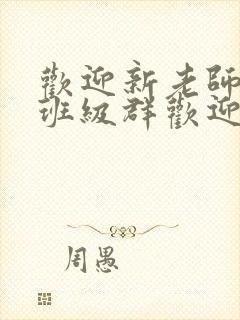 歡迎新老師
班級群歡迎
周愚